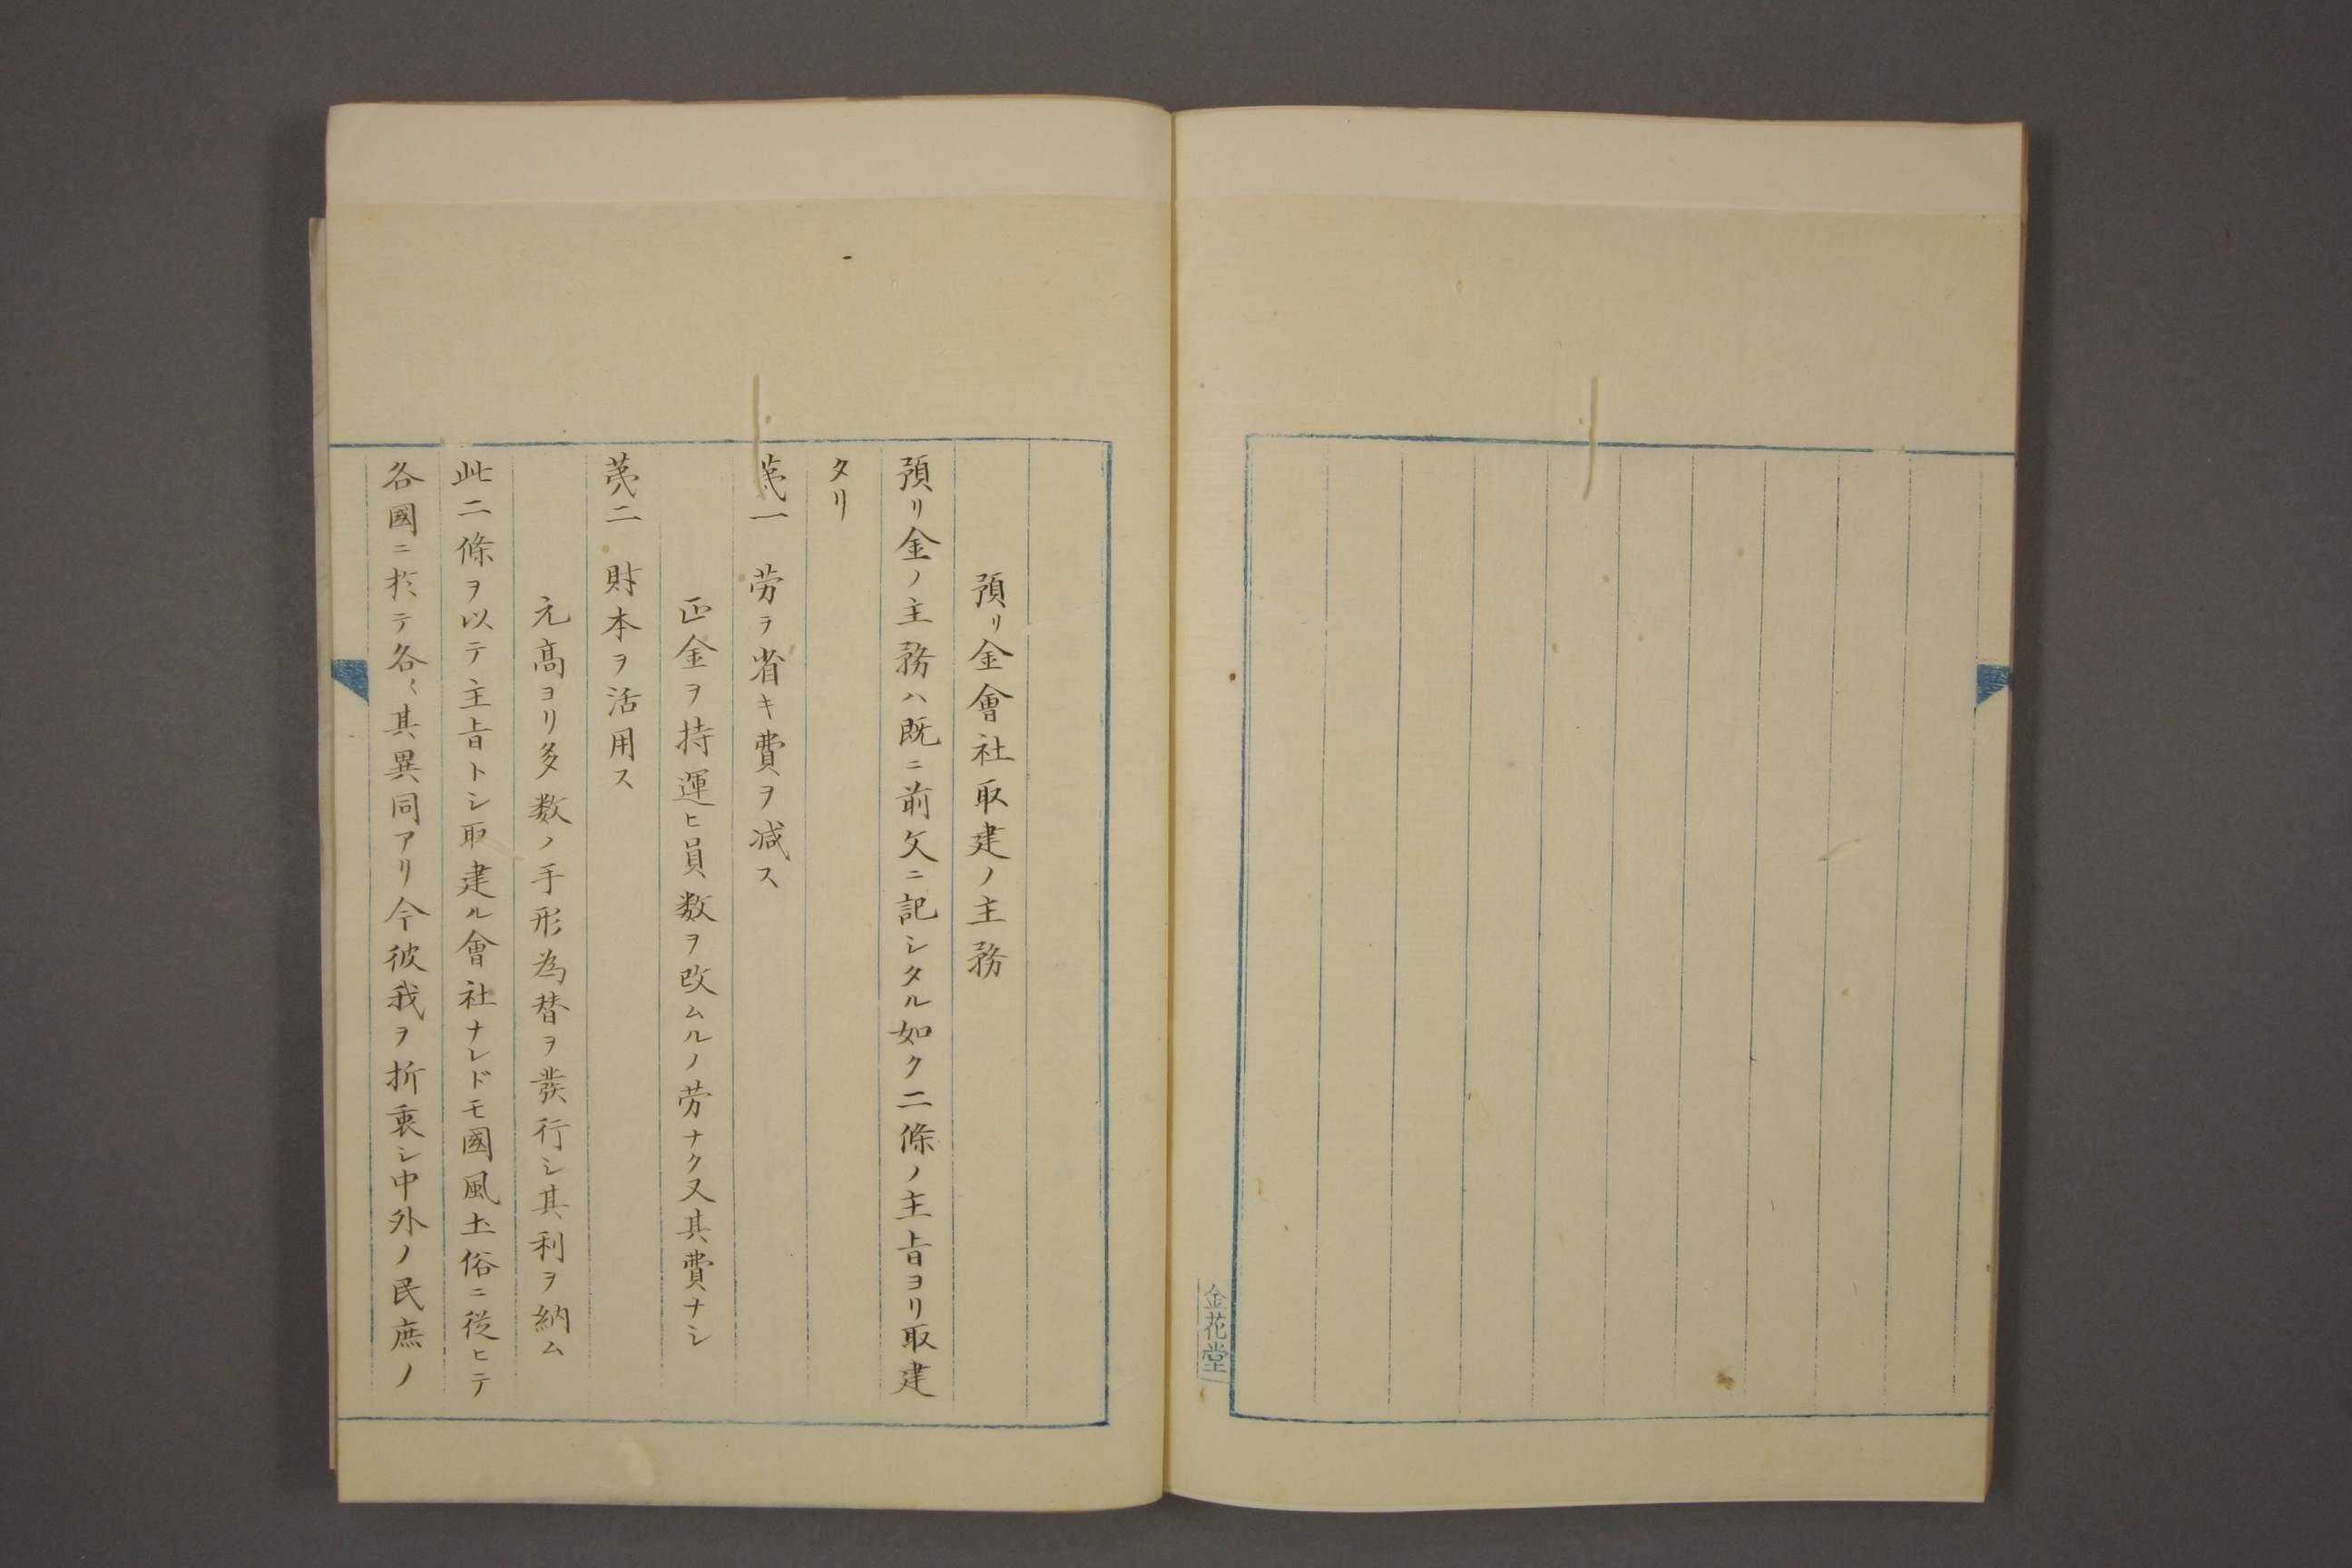 金花堂
預リ金會社取建ノ主務
預リ金ノ主務ハ既ニ前文ニ記シタル如ク二條ノ主旨ヨリ取建
タリ
第一 労ヲ省キ費ヲ減ス
正金ヲ持運ヒ員数ヲ改ムルノ労ナク又其費ナシ
第二 財本ヲ活用ス
元髙ヨリ多数ノ手形為替ヲ發行シ其利ヲ納ム
此二條ヲ以テ主旨トシ取建ル會社ナレドモ國風土俗ニ従ヒテ
各國ニ於テ各〻其異同アリ今彼我ヲ折衷シ中外ノ民庶ノ